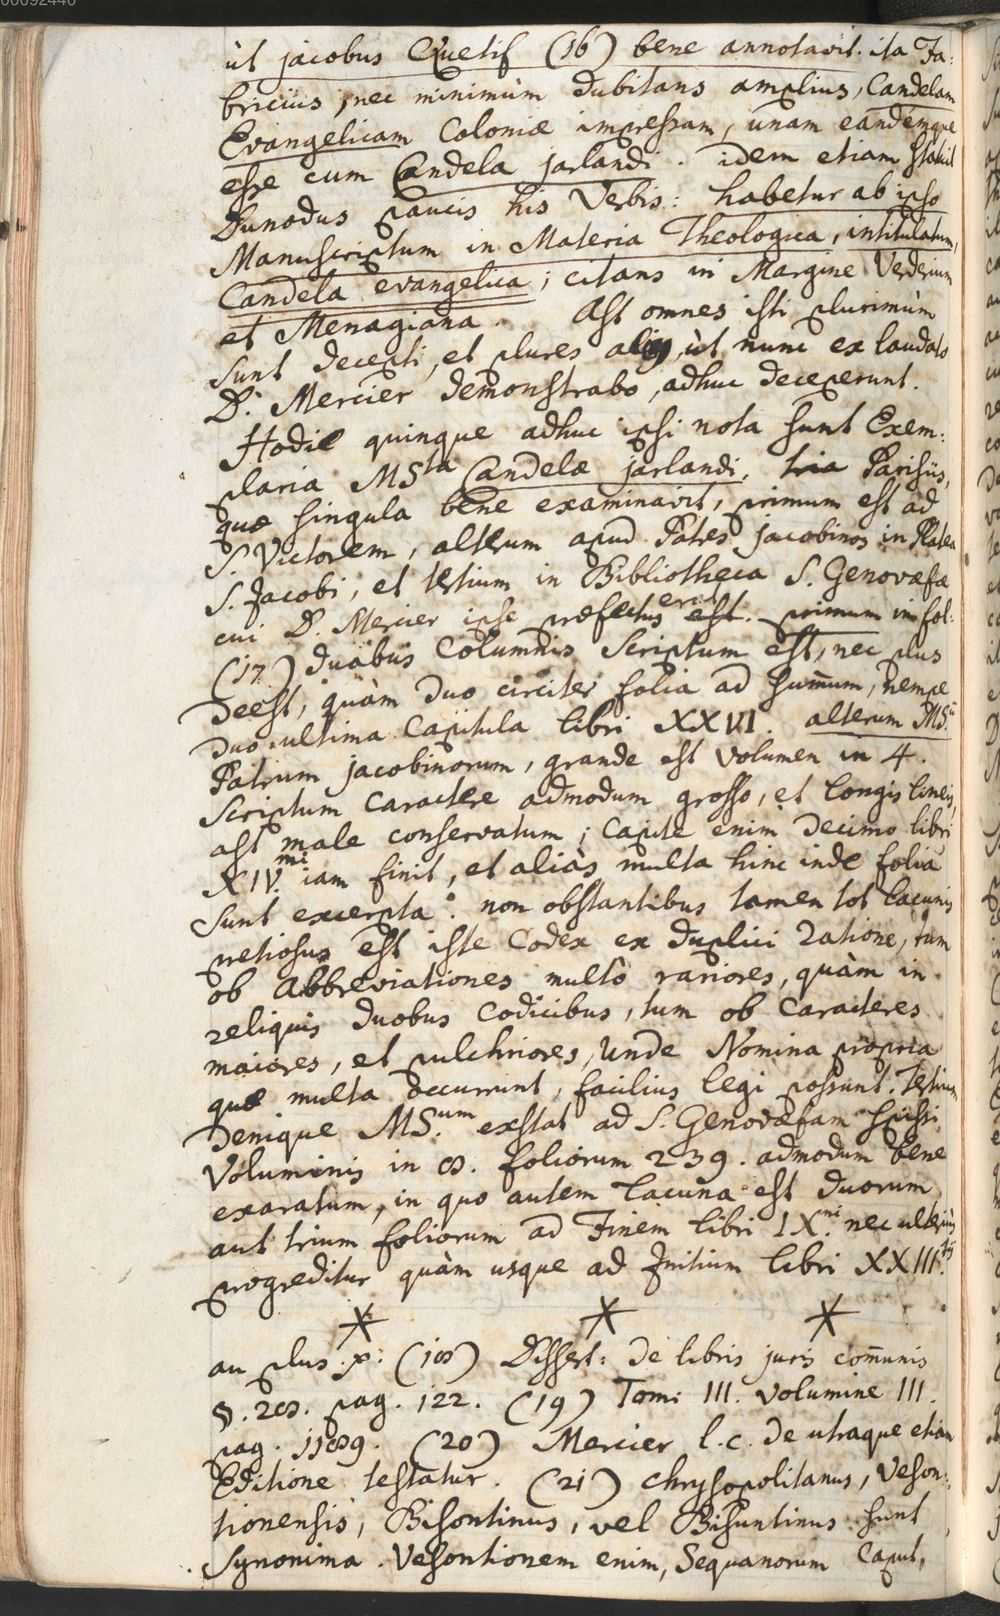 00092440
ùt jacobus Quetif (16) bene annotavit. ita Fa:
bricius, nec minimùm dubitans amplius, Candelam
Evangelicam Coloniæ impressam, unam eandemque
esse cum Candela jarlandi. idem etiam statuit
Dunodus paucis his Verbis: habetur ab ipso
Manuscriptum in Materia Theologica, intitulatum,
Candela evangelica; citans in Margine Verderium
et Menagiana. Ast omnes isti plurimùm
sunt decepti, et plures alios, ùt nunc ex laudato
D. Mercier demonstrabo, adhuc deceperunt.
Hodie quinque adhuc ipsi nota sunt Exem:
plaria MSta Candelæ jarlandi. tria Parisiis,
quæ singula bene examinavit, primum est ad
S. Victorem, alterum apud Patres jacobinos in Platea
S. Jacobi, et tertium in Bibliotheca S. Genovæfæ
cui D. Mercier ipse præfectus erat est. primum in fol:
(17) duabus Columnis scriptum est, nec plus
deest, quàm duo circiter folia ad sum̄um, nempe
duo ultima Capitula libri XXVI. alterum MS.
Patrum jacobinorum, grande est volumen in 4.
scriptum caractere admodum grosso, et longis lineis,
ast male conservatum; capite enim decimo libri
XIV.mi iam finit, et aliàs multa hinc inde folia
sunt excerpta: non obstantibus tamen tot lacunis
pretiosus est iste Codex ex duplici ratione, tum
ob Abbreviationes multò rariores, quàm in
reliquis duobus Codicibus, tum ob Caracteres
maiores, et pulchriores, Unde Nomina propria
quæ multa occurrunt, facilius legi possunt. Tertium
denique MS.um exstat ad S. Genovæfam spissi
Voluminis in 8. foliorum 239. admodum bene
exaratum, in quo autem lacuna est duorum
aut trium foliorum ad Finem libri IX.mi nec ulteriùs
progreditur quàm usque ad Initium libri XXIII.tij
* * *
an plus. p: (18) Dissert: de libris juris com̄unis
§. 28. pag. 122. (19) Tom: III. Volumine III.
pag. 1189. (20) Mercier l.c. de utraque etiam
Editione testatur. (21) Chrysopolitanus, Veson:
tionensis, Bisontinus, vel Bisuntinus sunt
synonima. Vesontionem enim, Sequanorum Caput,